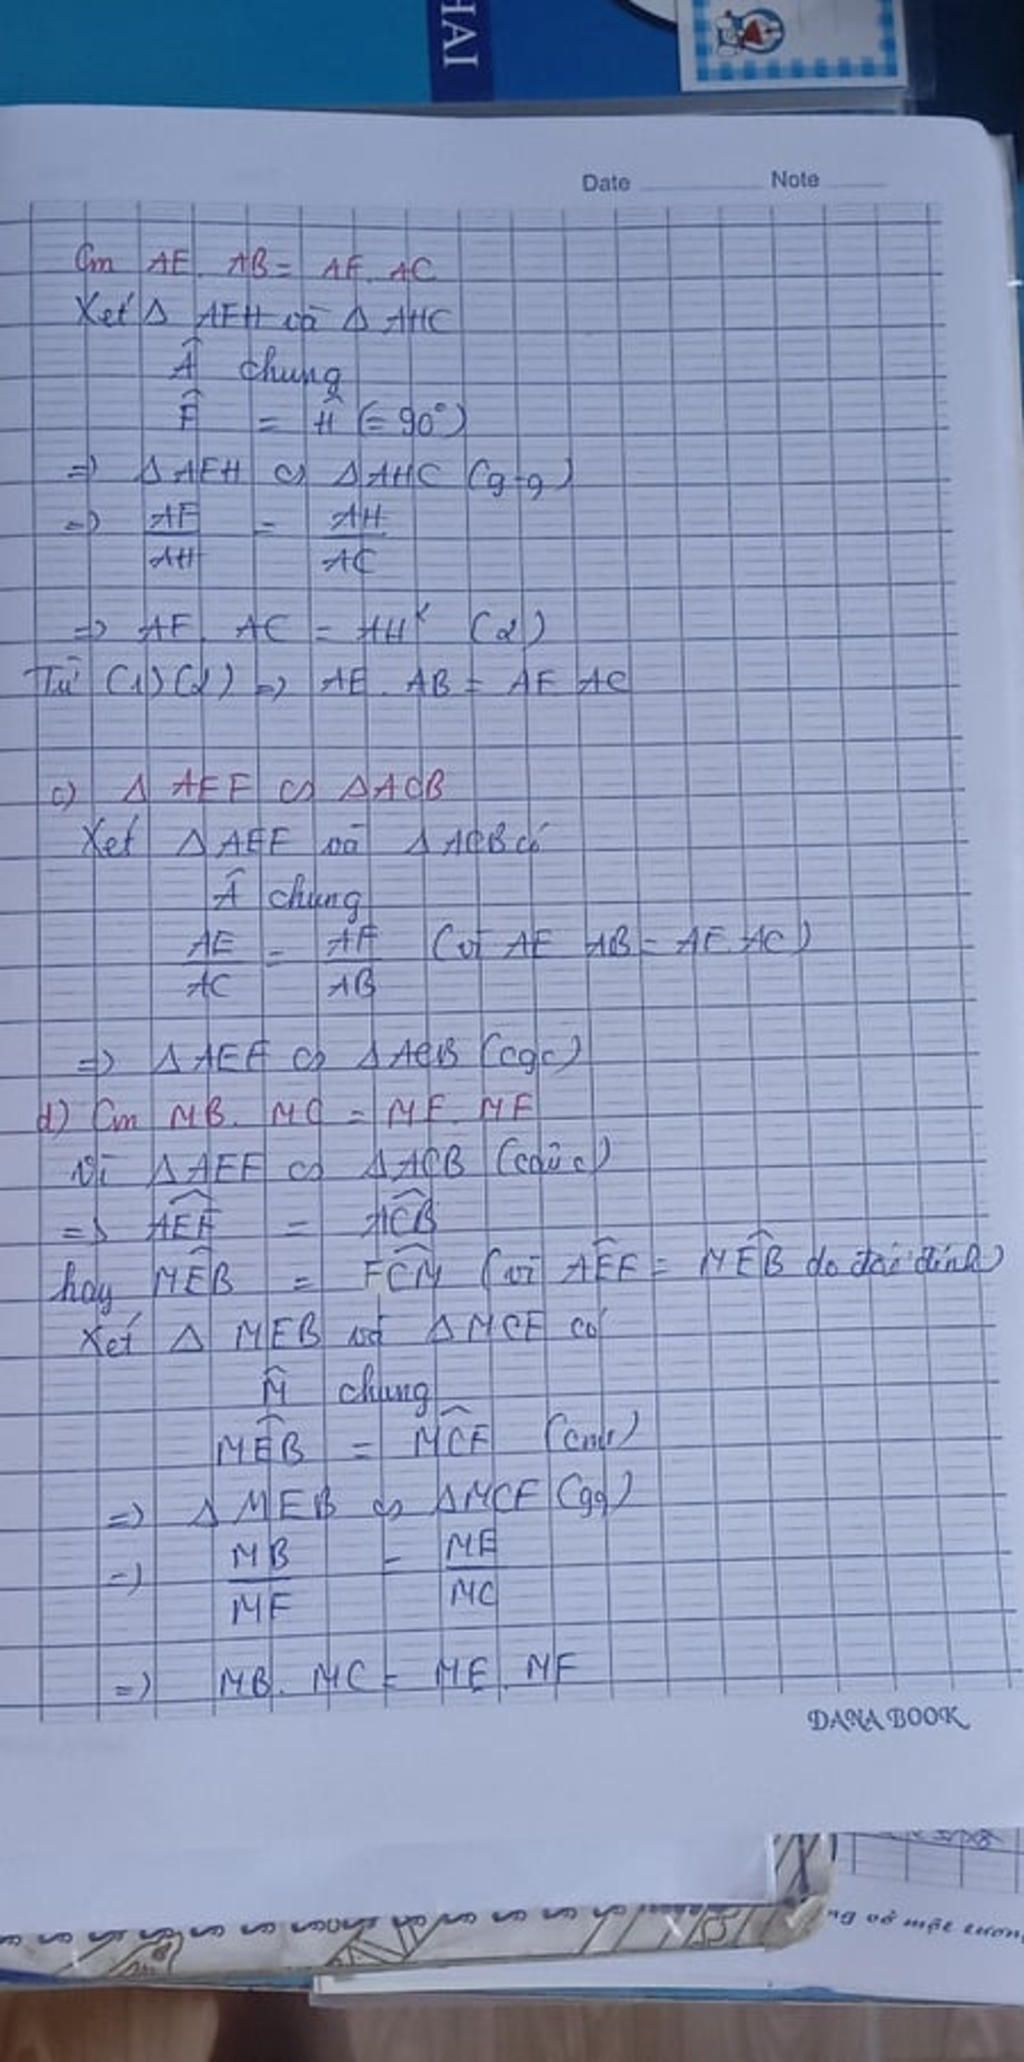 HAI
Date Note
Cm AE. AB = AF. AC
Xét Δ AFH và Δ AHC
Â chung
F̂ = Ĥ (= 90°)
=> Δ AFH ∽ Δ AHC (g-g)
=> AF/AH = AH/AC
=> AF. AC = AH² (2)
Từ (1)(2) => AE. AB = AF AC
c) Δ AEF ∽ ΔACB
Xét Δ AEF và Δ ACB có
Â chung
AE/AC = AF/AB (vì AE AB = AF. AC)
=> Δ AEF ∽ Δ ACB (cgc)
d) Cm MB. MC = ME. MF
Vì Δ AEF ∽ ΔACB (câu c)
=> AÊF = AĈB
hay MÊB = FĈM (vì AÊF = MÊB do đối đỉnh)
Xét Δ MEB và Δ MCF có
M̂ chung
MÊB = MĈF (cmt)
=> Δ MEB ∽ ΔMCF (gg)
=> MB/MF = ME/MC
=> MB. MC = ME. MF
DANA BOOK
ng vở mặt